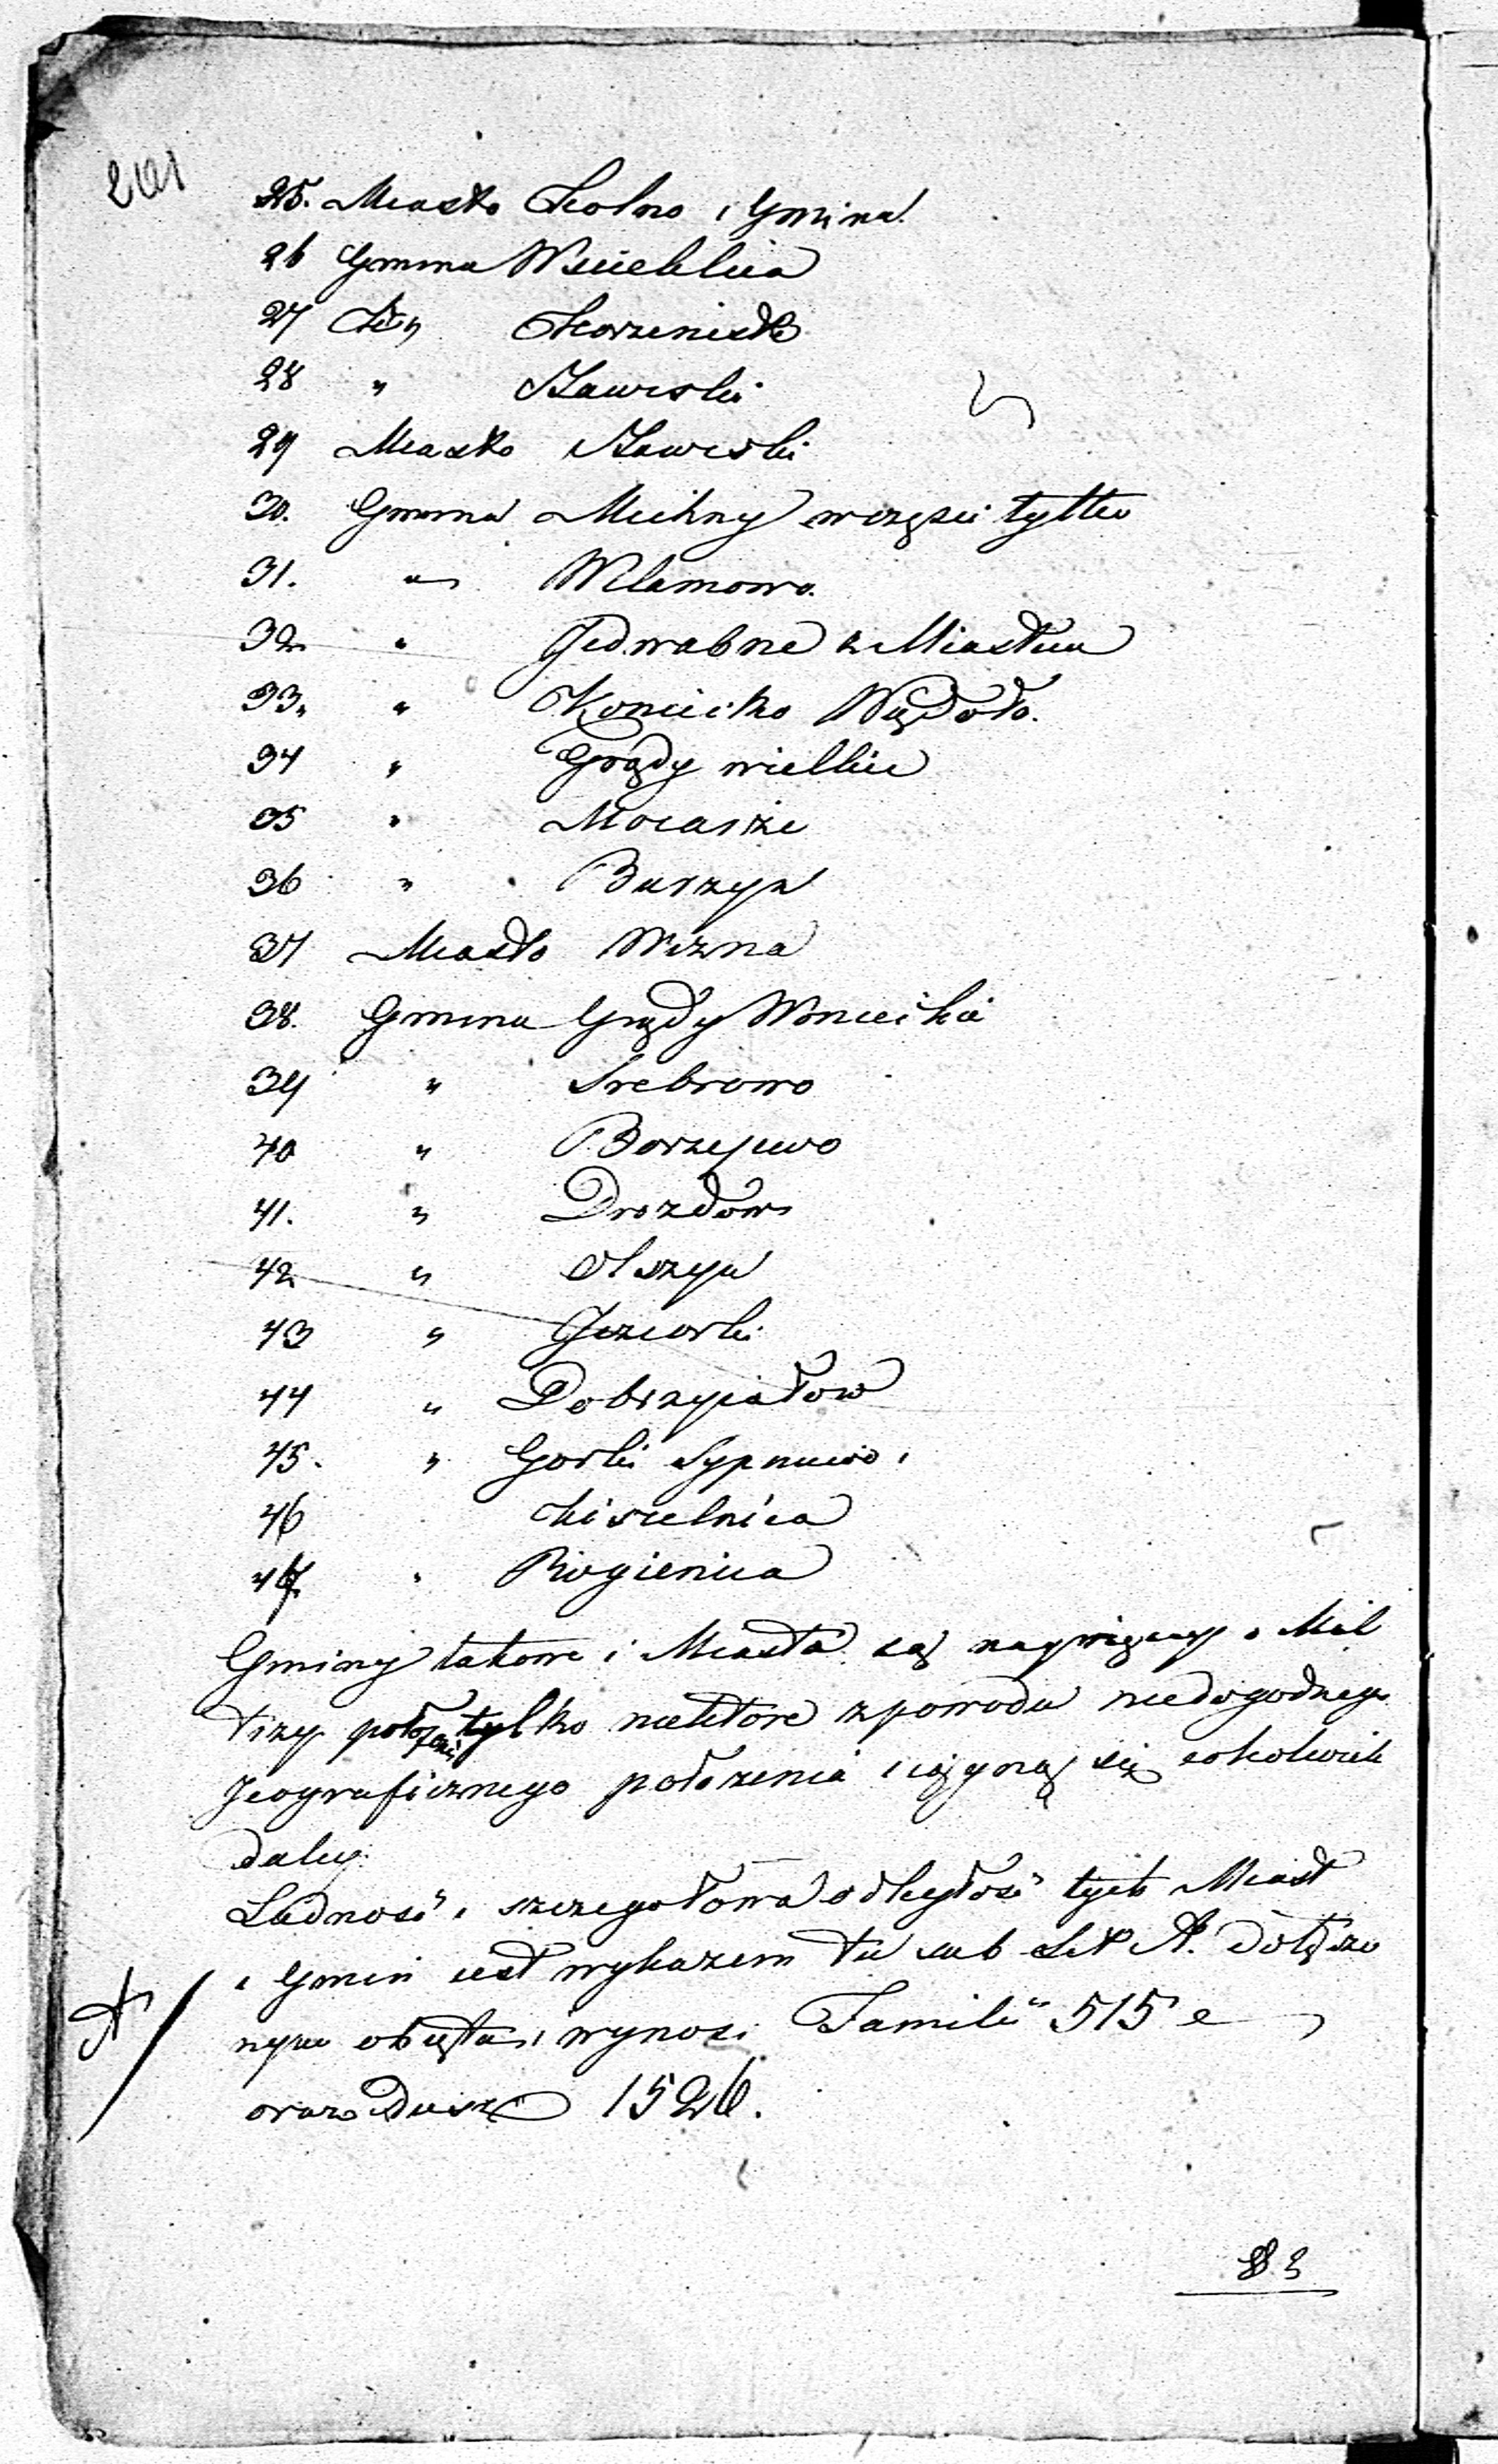 201
25. Miasto Kolno i Gmina
26 Gmina Wscieklica
27 Korzeniste
28 " Stawiski
29 Miasto Stawiski
30. Gmina Michny w części tylko
31. " Wilamowo.
32 " Jedwabne z Miastem
33. " Konieczko
34 " Grądy wielkie
35 " Mocarze
36 " Burzyn
37 Miasto Wizna
38. Gmina Grądy Woniecko
39 " Srebrowo
40 " Borzejewo
41. " Drozdowo
42 " Olszyn
43 " Jeziorki
44 " Dobrzyiałow
45. " Gorki Sypniewo
46 Kisielnica
47 " Rogienica
Gminy takowe i Miasta są naywięcey o Mil
trzy położone tylko niektore z powodu niedogodnego
jeograficznego położenia ciągną się cokolwiek
daley.
Ludność i szczegołowa odległość tych Miast
i Gmin iest wykazem tu sub Lit A. dołączo
A/ nym obięta i wynosi Familii 515 e
oraz Dusz 1526.
§ 2